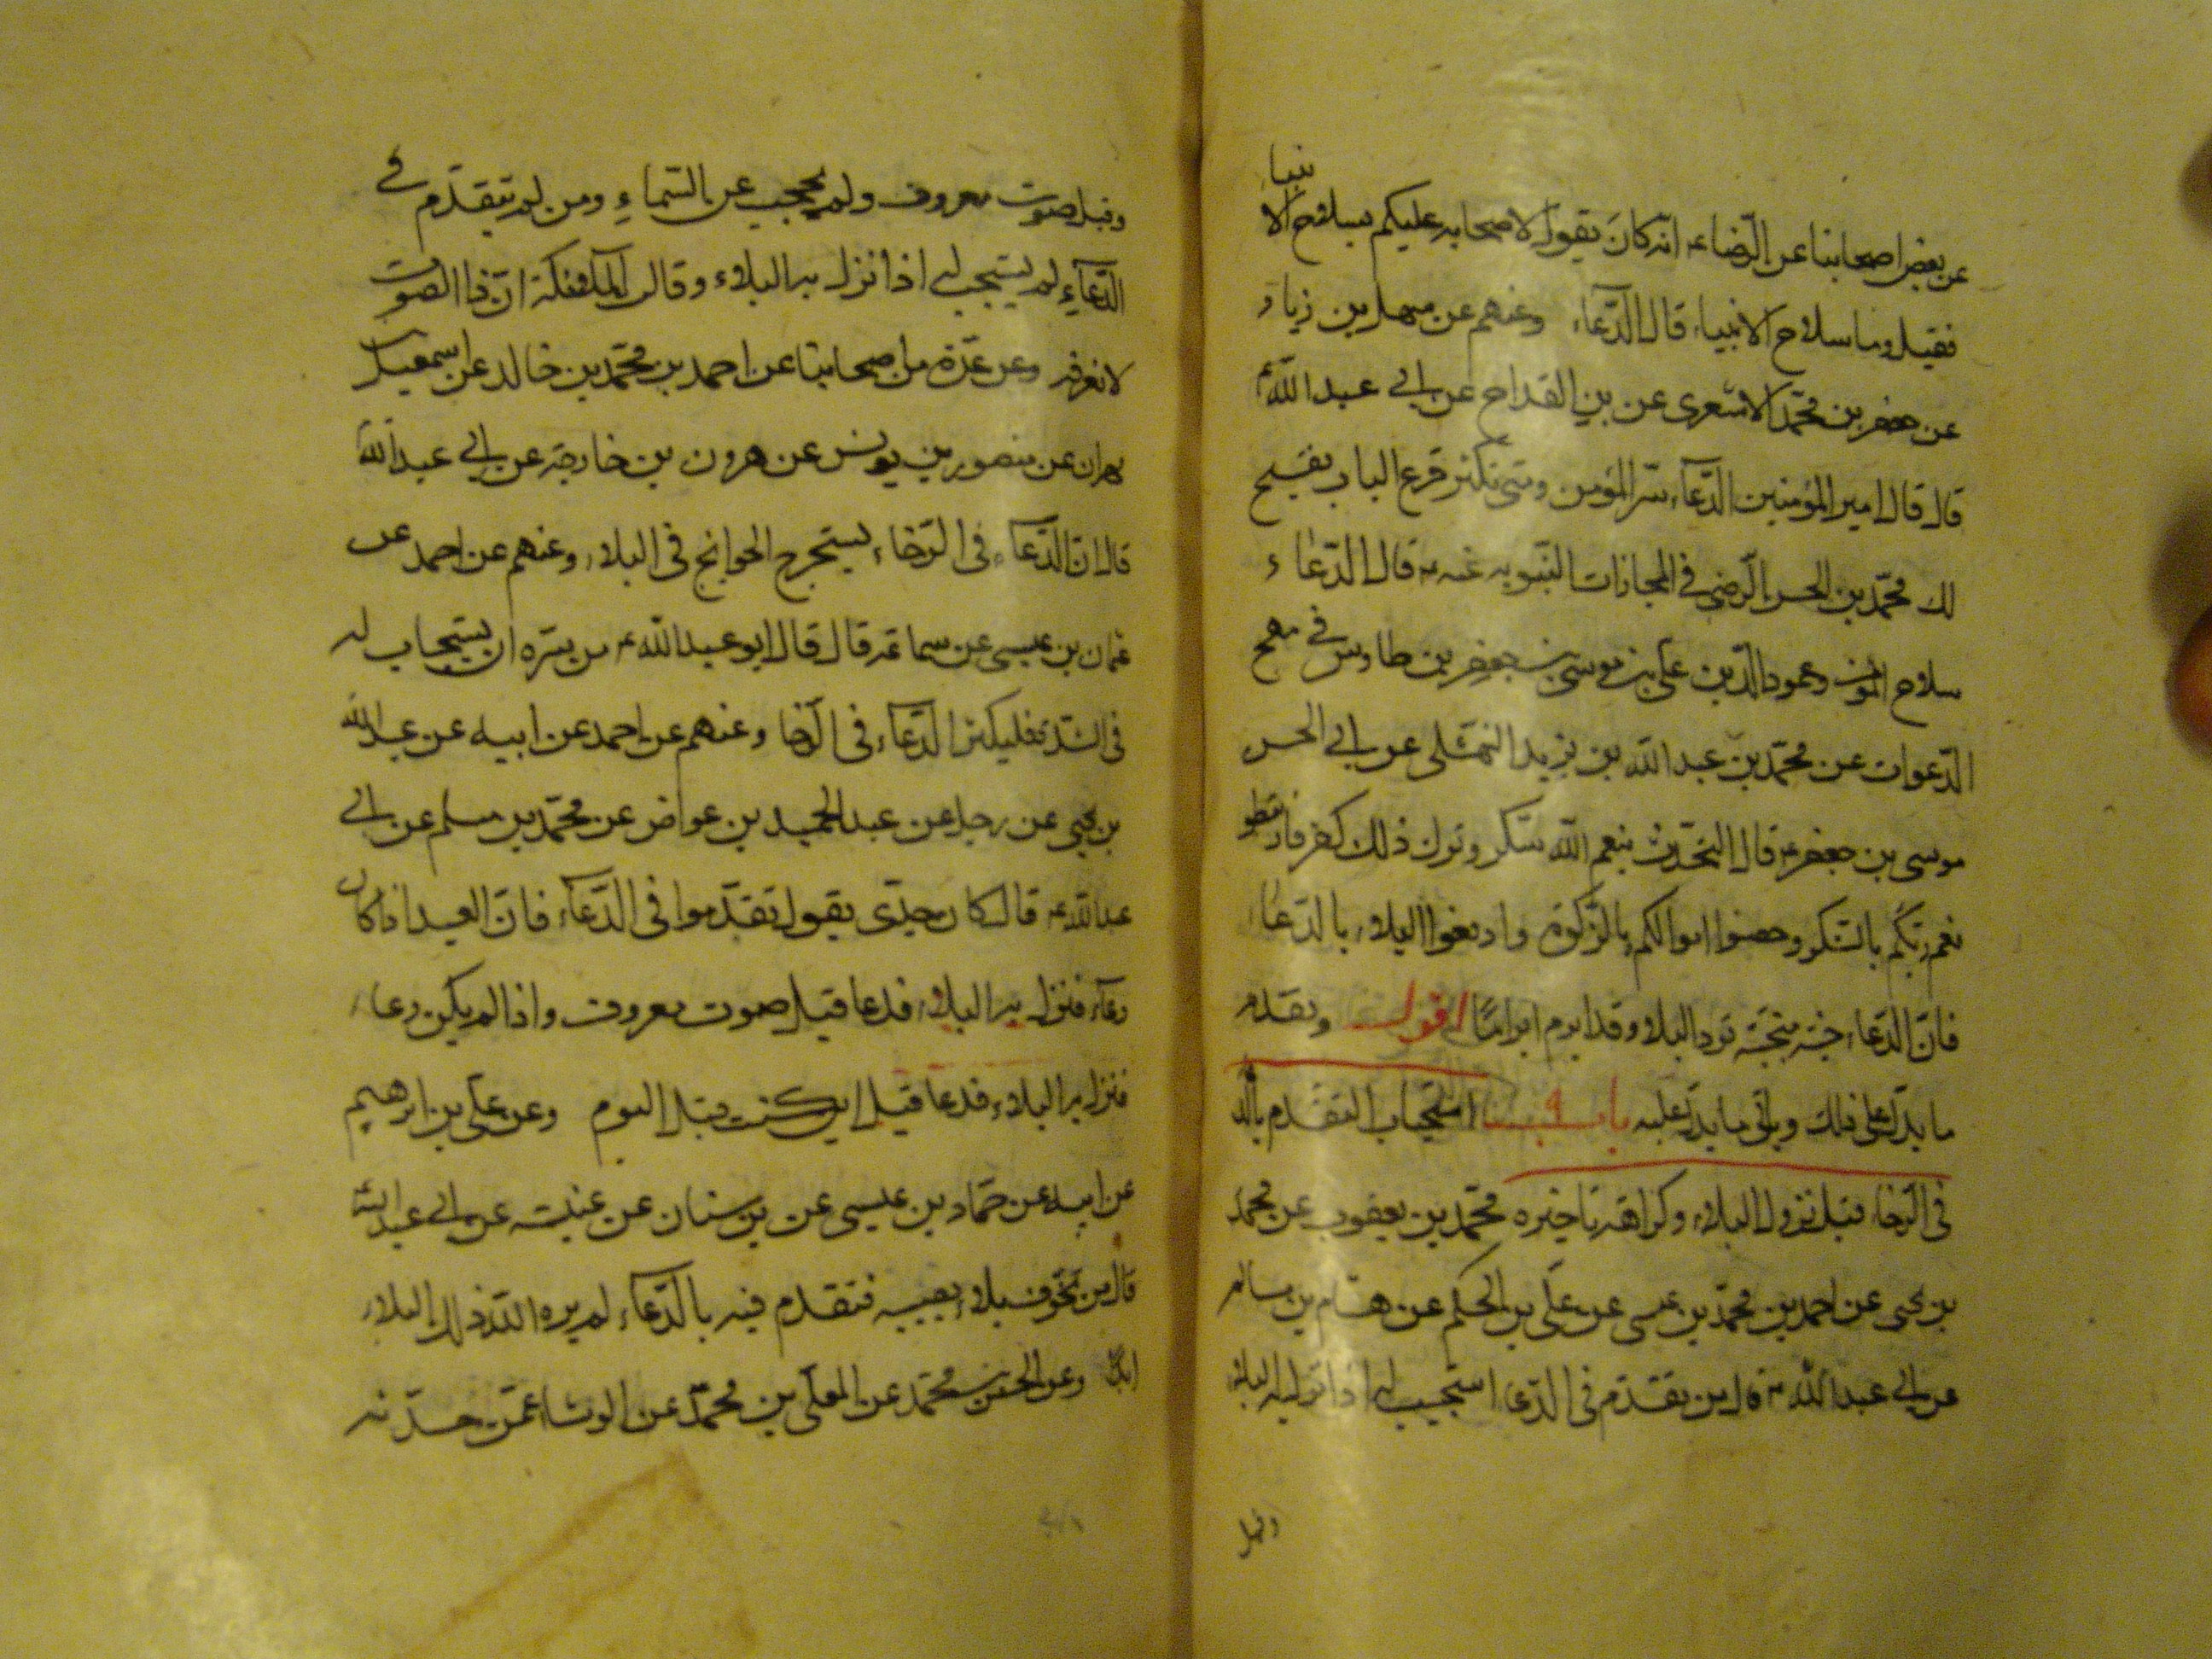 عن بعض اصحابنا عن الرّضا ع انّه كانَ يقول لاصحابه عليكم بسلاح الانبيا
فقيل وما سلاح الانبياء قال الدّعاء وعنهم عن سهل بن زياد
عن جعفر بن محمّد الاشعرى عن بن القداح عن ابى عبد الله ع
قال قال امير المؤمنين الدّعاء ترس المؤمن ومتى تكثر قرع الباب يفتح
لك محمّد بن الحسين الرّضى فى المجازات النّبويه عنه ع قال الدّعاء
سلاح المؤمن وعمود الدّين علىّ بن موسى بن جعفر بن طاوس فى مهج
الدّعوات عن محمّد بن عبد الله بن يزيد النهشلى عن ابى الحسن
موسى بن جعفر ع قال التحدّث بنعم الله شكر وترك ذلك كفر فارتبطوا
نعم ربّكم بالشّكر وحصنوا اموالكم بالزّكوة وادفعوا البلاء بالدّعاء
فانّ الدّعاء جنّة منجّية تردّ البلاء وقد ابرم ابراما اقول وتقدم
ما يدلّ على ذلك وياتى ما يدلّ عليه باب ٩ استحباب التقدّم بالدّ
فى الرّخاء قبل نزول البلاء وكراهة تاخيره محمّد بن يعقوب عن محمّد
بن يحيى عن احمد بن محمّد بن عيسى عن علىّ بن الحكم عن هشام بن سالم
عن ابى عبد الله ع قال من تقدّم فى الدّعا استجيب له اذا نزل به البلاء
وقيل
وقيل صوت معروف ولم يحجب عن السّماءِ ومن لم يتقدّم فى
الدّعاءِ لم يستجب له اذا نزل به البلاء وقالت الملائكة انّ ذا الصوت
لا نعرفه وعن عدّة من اصحابنا عن احمد بن محمّد بن خالد عن اسمعيل
مهران عن منصور بن يونس عن هرون بن خارجة عن ابى عبد الله
قال ان الدّعاء فى الرّخاء يستخرج الحوائج فى البلاء وعنهم عن احمد عن
عثمان بن عيسى عن سماعة قال قال ابو عبد الله ع من سرّه ان يستجاب له
فى الشدّة فليكثر الدّعاء فى الرّخا وعنهم عن احمد عن ابيه عن عبيد الله
بن يحيى عن رجل عن عبد الحميد بن عواض عن محمّد بن مسلم عن ابى
عبد الله ع قال كان جدّى يقول تقدّموا فى الدّعاء فانّ العبد اذا كان
دعّاء فنزل به البلاء فدعا قيل صوت معروف واذا لم يكن دعّاء
فنزل به البلاء فدعا قيل اين كنت قبل اليوم وعن علىّ بن ابرهيم
عن ابيه عن حمّاد بن عيسى عن بن سنان عن عنبسة عن ابى عبد الله
قال من تخوّف بلاء يصيبه فتقدم فيه بالدّعاء لم يره الله ذلك البلاء
ابدا وعن الحسين بن محمّد عن المعلّى بن محمّد عن الوشا عمّن حدّثه